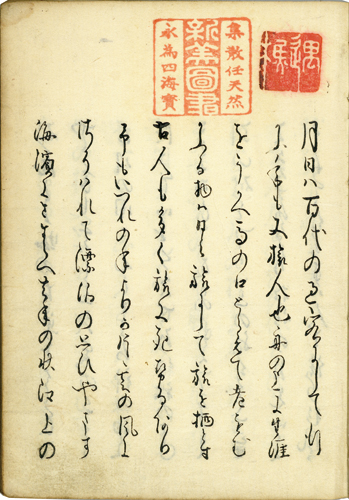 集散任天然
圖書
永為四海寶
月日ハ百代の過客にして行
かふ年も又旅人也舟の上に生涯
をうかへ馬の口とらえて老をむ
かふる物ハ日々旅にして旅を栖とす
古人も多く旅に死せるあり
予もいつれの年よりか片雲の風に
さそハれて漂泊の思ひやます
海濱にさすらへ去年の秋江上の